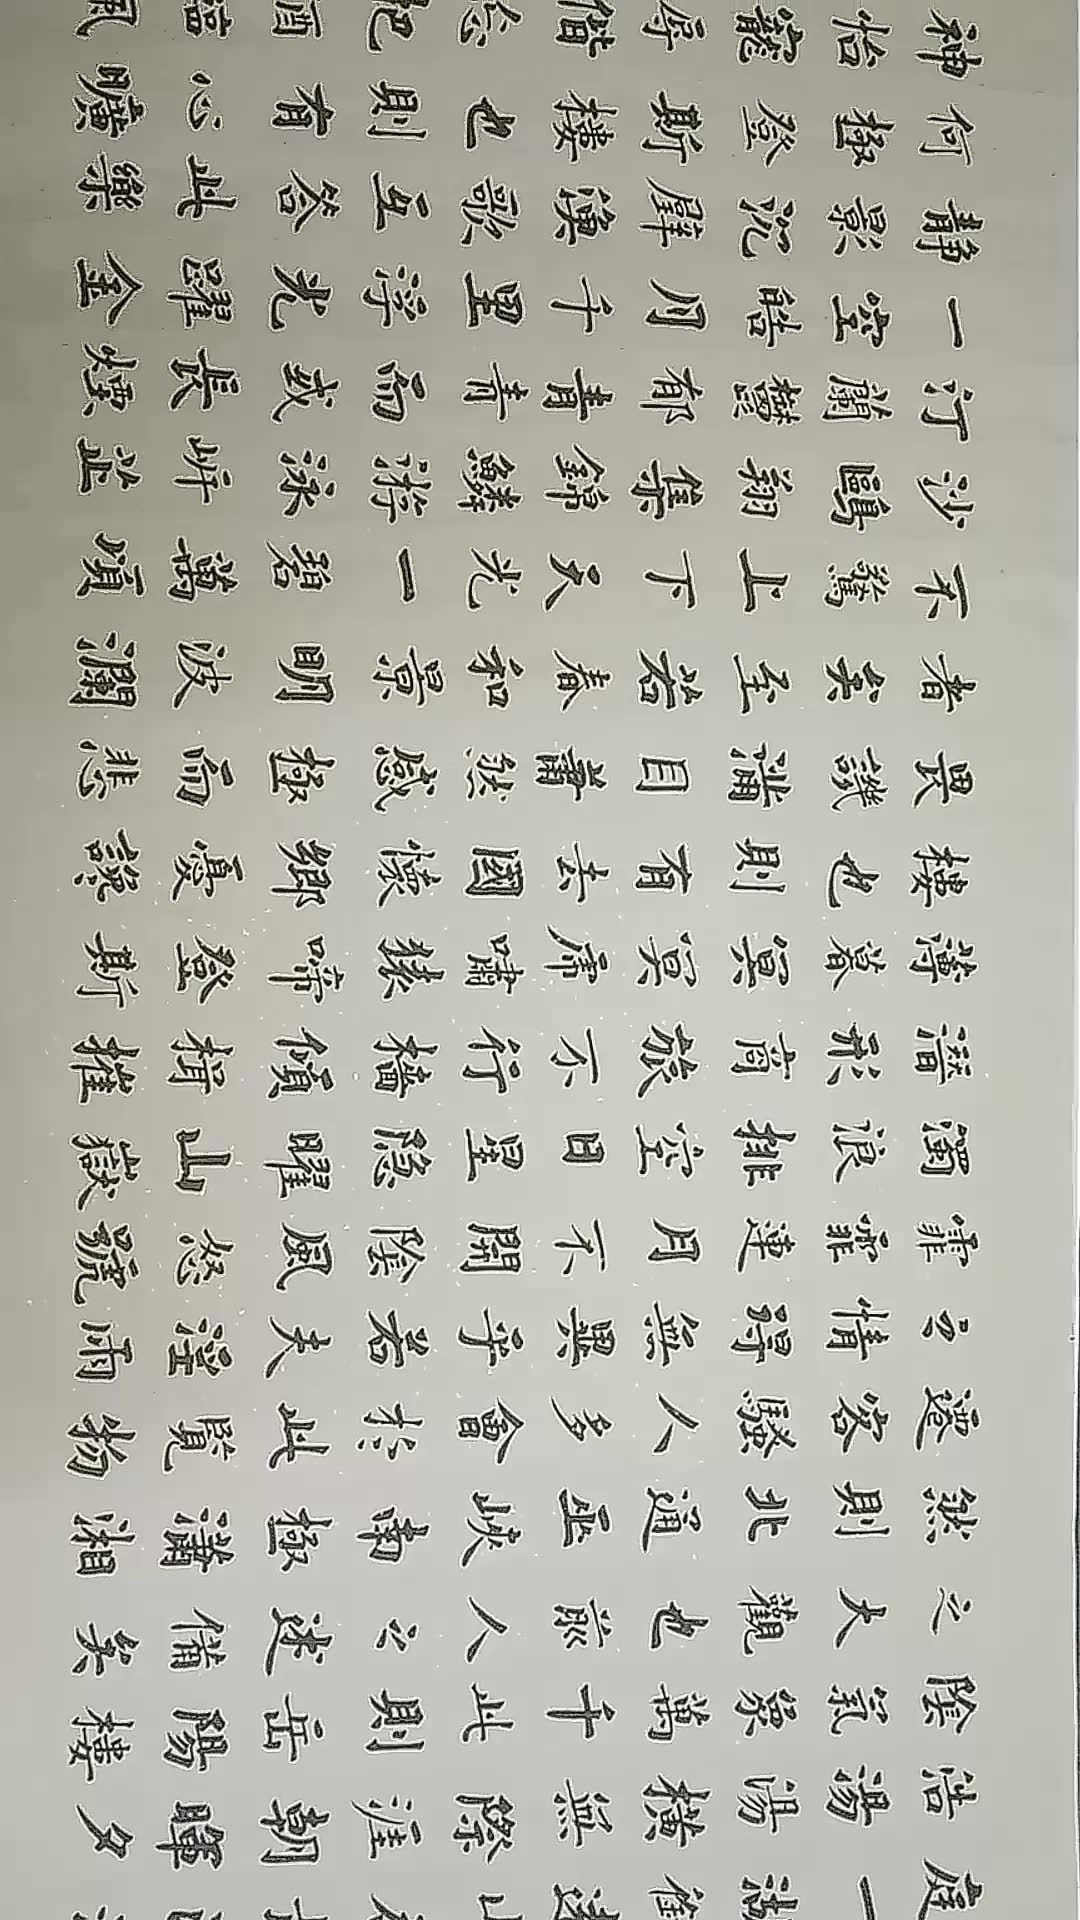 庭一湖銜遠山吞長江浩
浩湯湯橫無際涯朝暉夕
陰氣象萬千此則岳陽樓
之大觀也前人之述備矣
然則北通巫峽南極瀟湘
遷客騷人多會於此覽物
之情得無異乎若夫淫雨
霏霏連月不開陰風怒號
濁浪排空日星隱曜山嶽
潛形商旅不行檣傾楫摧
薄暮冥冥虎嘯猿啼登斯
樓也則有去國懷鄉憂讒
畏譏滿目蕭然感極而悲
者矣至若春和景明波瀾
不驚上下天光一碧萬頃
沙鷗翔集錦鱗游泳岸芷
汀蘭郁郁青青而或長煙
一空皓月千里浮光躍金
靜影沉璧漁歌互答此樂
何極登斯樓也則有心曠
神怡寵辱偕忘把酒臨風